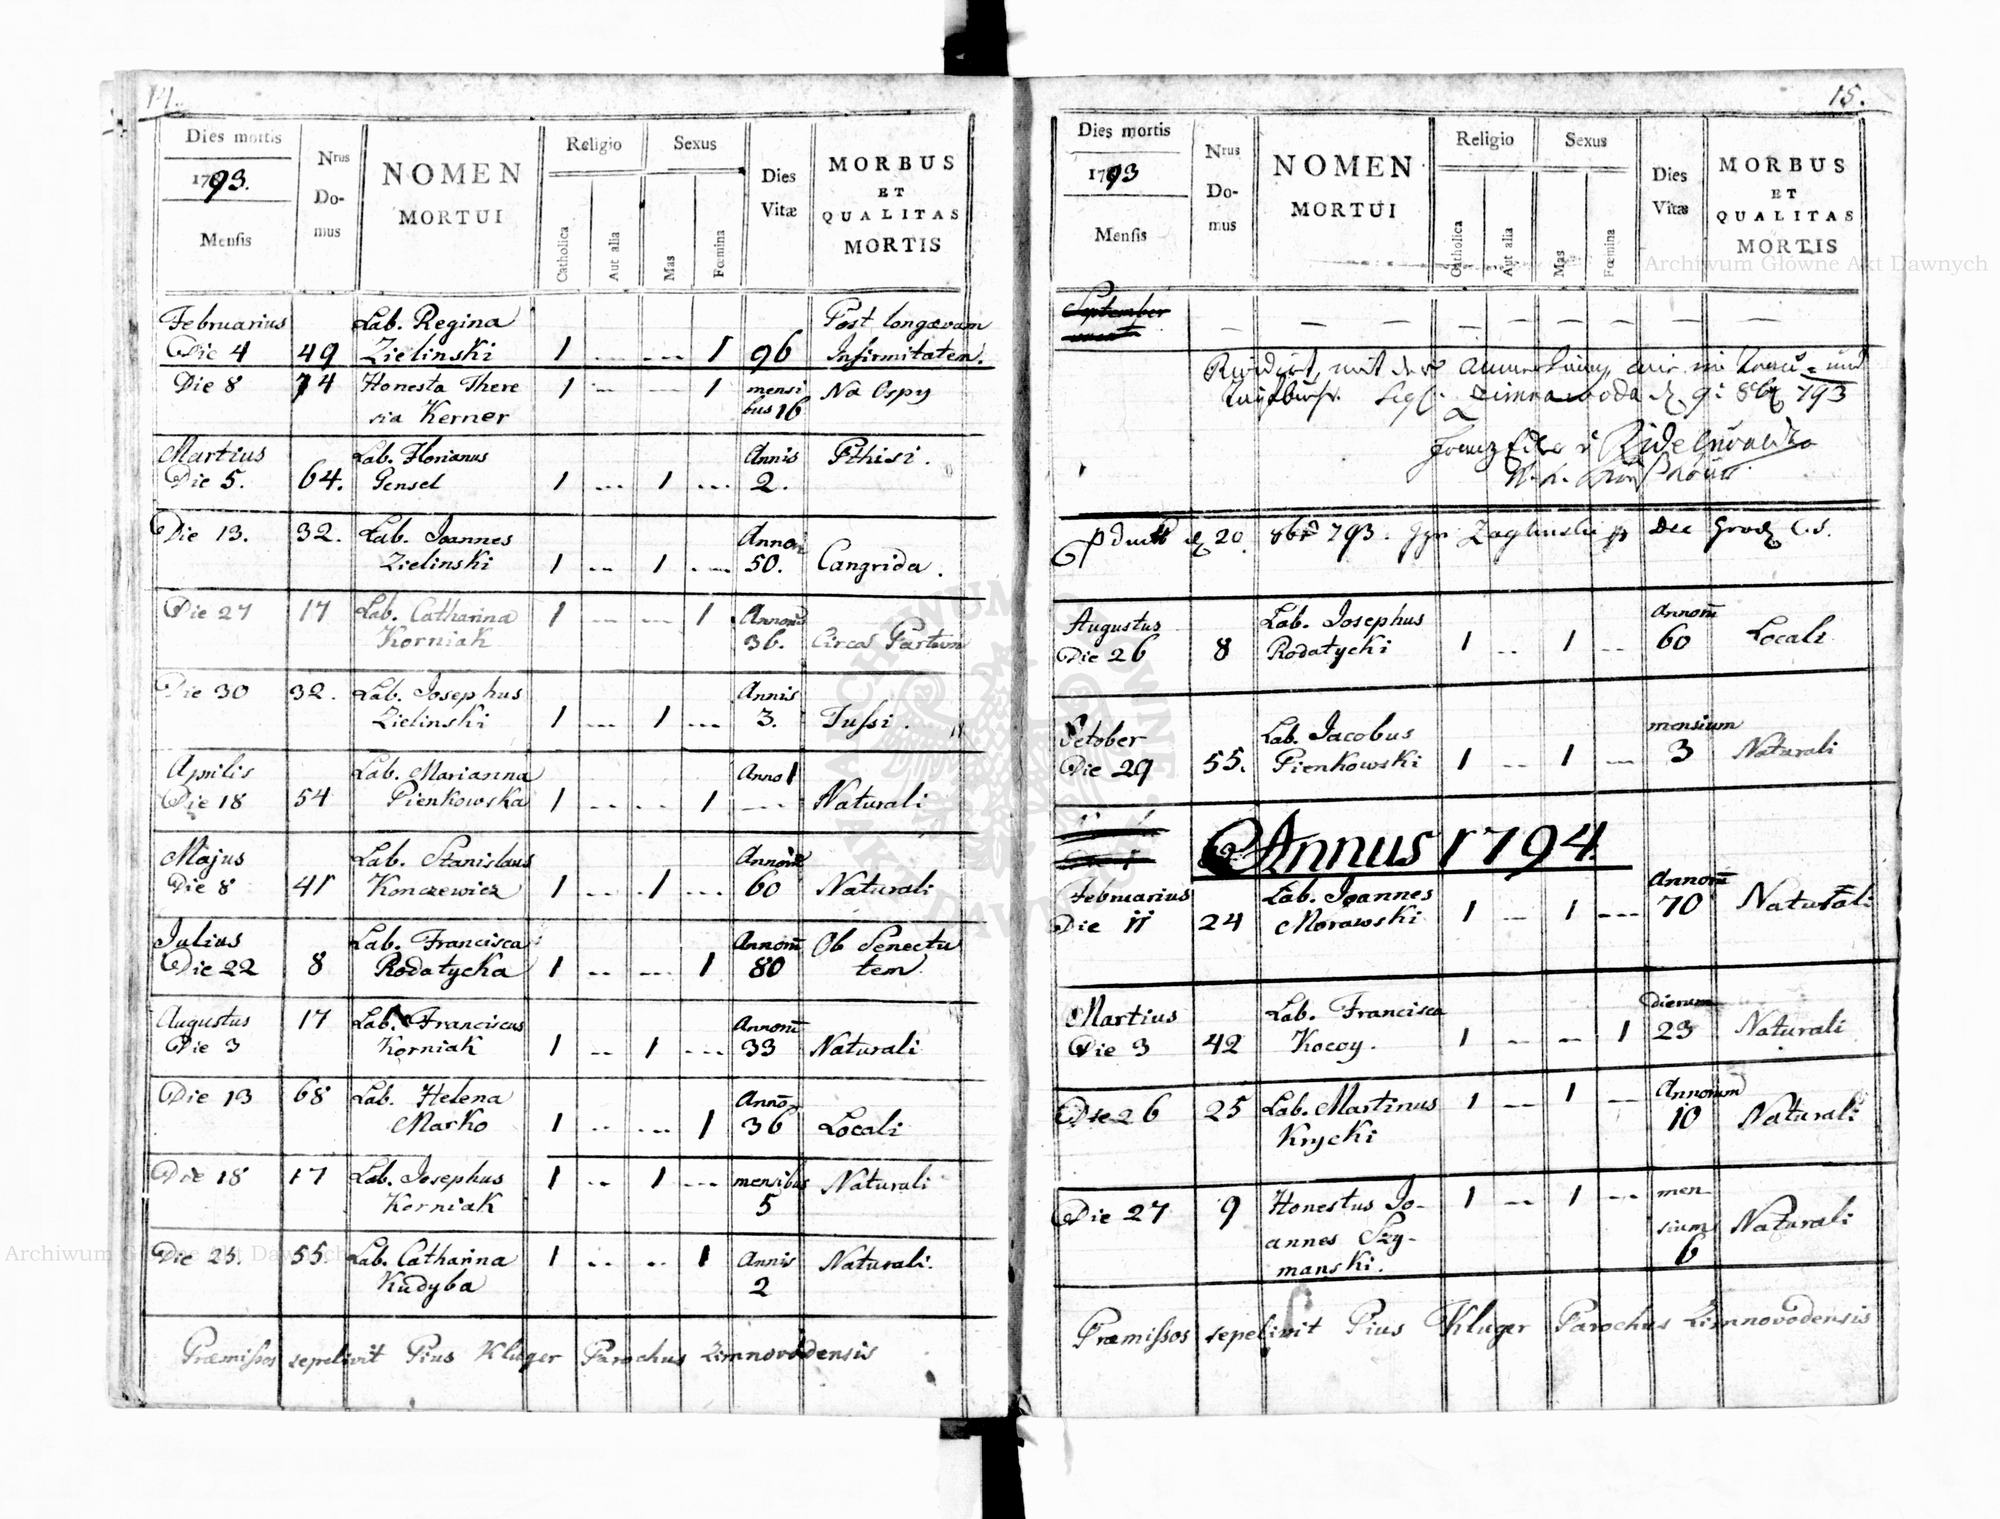 14.
Dies mortis
1793.
Mensis
Nrus
Do-
mus
NOMEN
MORTUI
Religio
Catholica
Aut alia
Sexus
Mas
Fœmina
Dies
Vitæ
MORBUS
ET
QUALITAS
MORTIS
Februarius Lab. Regina Post longævam
Die 4 49 Zielinski 1 ... ... 1 96 Infirmitatem.
Die 8 74 Honesta There 1 ... 1 mensi Na Ospy
sia Kerner bus 16
Martius Lab. Florianus Annis Pthisi.
Die 5. 64. Gensel 1 ... 1 ... 2.
Die 13. 32. Lab. Joannes Annor
Zielinski 1 ... 1 ... 50. Cangrida.
Die 27 17 Lab. Catharina 1 ... ... 1 Annor
Korniak 36. Circa Partum
Die 30 32. Lab. Josephus Annis
Zielinski 1 ... 1 ... 3. Tussi.
Aprilis Lab. Marianna Anno 1
Die 18 54 Pienkowska 1 ... ... 1 ... Naturali
Majus Lab. Stanislaus Annorū
Die 8 41 Konczewicz 1 ... 1 ... 60 Naturali
Julius Lab. Francisca Annorū Ob Senectu
Die 22 8 Rodatycka 1 ... ... 1 80 tem.
Augustus 17 Lab. Franciscus Annorū
Die 3 Korniak 1 ... 1 ... 33 Naturali
Die 13 68 Lab. Helena Anno
Marko 1 ... ... 1 36 Locali
Die 18 17 Lab. Josephus 1 ... 1 ... mensibus Naturali
Korniak 5
Die 23. 55. Lab. Catharina 1 ... ... 1 Annis Naturali.
Kudyba 2
Præmissos sepelivit Pius Kluger Parochus Zimnovodensis
15.
Dies mortis
1793
Mensis
Nrus
Do-
mus
NOMEN
MORTUI
Religio
Catholica
Aut alia
Sexus
Mas
Fœmina
Dies
Vitæ
MORBUS
ET
QUALITAS
MORTIS
September
Revidirt, mit der Anmerkung wie im Trau- und
Taufbuch. Zimnawoda 9: 8br 793
Franz
20 8br 793. Zaglinski Dec Grod
Augustus Lab. Josephus Annorū
Die 26 8 Rodatycki 1 ... 1 ... 60 Locali
October Lab. Jacobus mensium
Die 29 55. Pienkowski 1 ... 1 ... 3 Naturali
Annus 1794.
Februarius Lab. Joannes Annorū Naturali
Die 11 24 Morawski 1 ... 1 ... 70
Martius Lab. Francisca Dierum
Die 3 42 Kocoy. 1 ... ... 1 23 Naturali
Die 26 25 Lab. Martinus 1 ... 1 ... Annorum Naturali
Krycki 10
Die 27 9 Honestus Jo- 1 ... 1 ... men
annes Szy- sium Naturali
manski. 6
Præmissos sepelivit Pius Kluger Parochus Zimnovodensis
Archiwum Główne Akt Dawnych
Archiwum Główne Akt Dawnych
ARCHIWUM GŁÓWNE AKT DAWNYCH